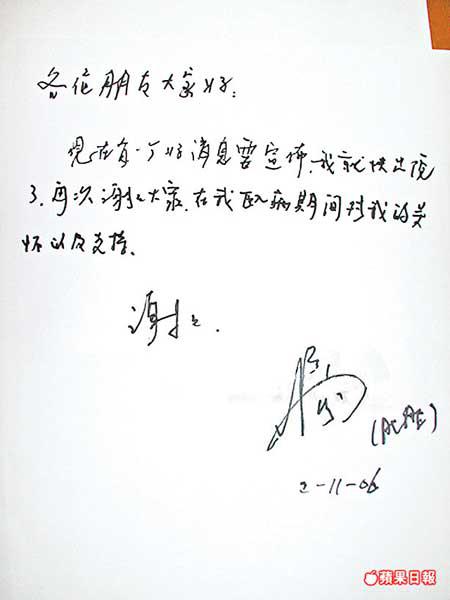 各位朋友大家好:
现在有一个好消息要宣佈,我就快出院
了.再次谢々大家,在我臥病期间对我的关
怀以及支持.
谢々.
2-11-06
蘋果日報